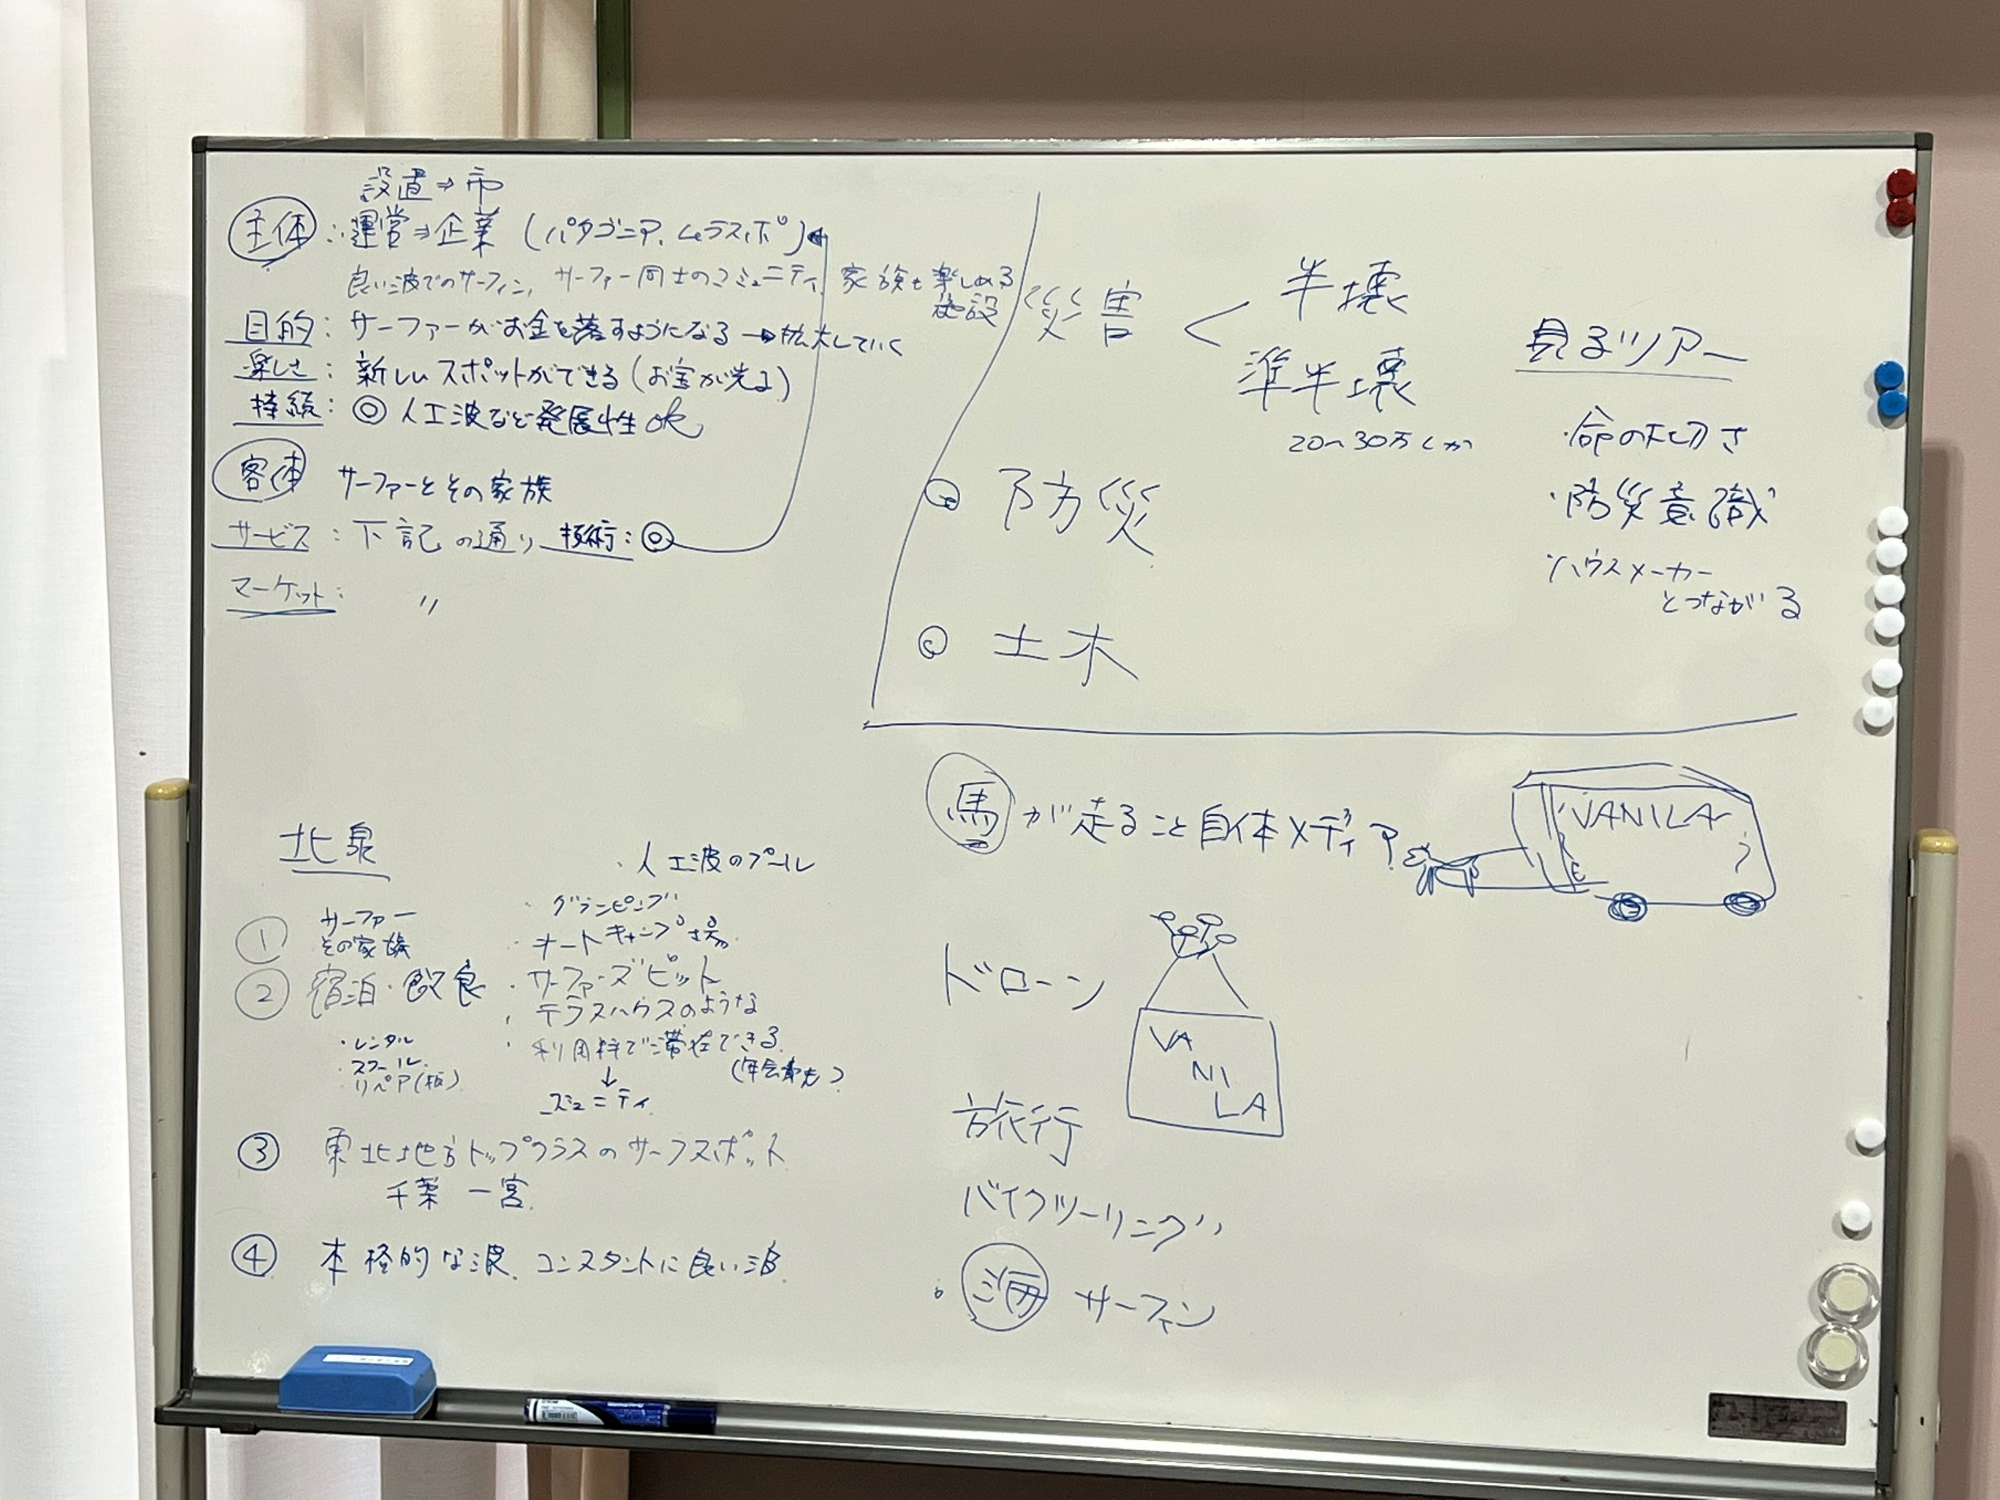 設置⇒市
主体:運営⇒企業(パタゴニア、ムラスポ)
良い波でのサーフィン、サーファー同士のコミュニティ、家族も楽しめる
施設
目的:サーファーがお金を落すようになる→拡大していく
楽しさ:新しいスポットができる(お宝が光る)
持続:◎人工波など発展性ok
客体 サーファーとその家族
サービス:下記の通り 技術:◎
マーケット: 〃
災害 <
半壊
準半壊
20〜30万くか
◎ 防災
◎ 土木
見るツアー
・命の大切さ
・防災意識
・ハウスメーカー
とつながる
北泉
① サーファー
その家族
② 宿泊・飲食
・レンタル
・スクール
・リペア(板)
・人工波のプール
・グランピング
・オートキャンプ場
・サーファーズピット
・テラスハウスのような
・利用料で滞在できる
(年会費も?)
↓
コミュニティ
③ 東北地方トップクラスのサーフスポット
千葉 一宮
④ 本格的な波、コンスタントに良い波
馬が走ること自体メディア
VANILA
ドローン
VA
NI
LA
旅行
バイクツーリング
・海 サーフィン